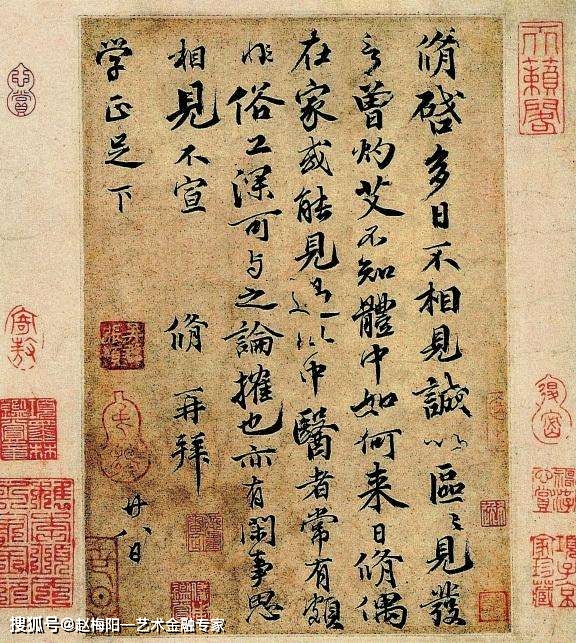 脩啓多日不相見誠以區〻見發
言曾灼艾不知體中如何来日脩偶
在家或能見過此中醫者常有頗
非俗工深可与之論搉也亦有閑事思
相見不宣 脩 再拜
学正足下 廿八日
天籟閣
寄敖
項墨林鑑賞章
搜狐号@赵梅阳—艺术金融专家